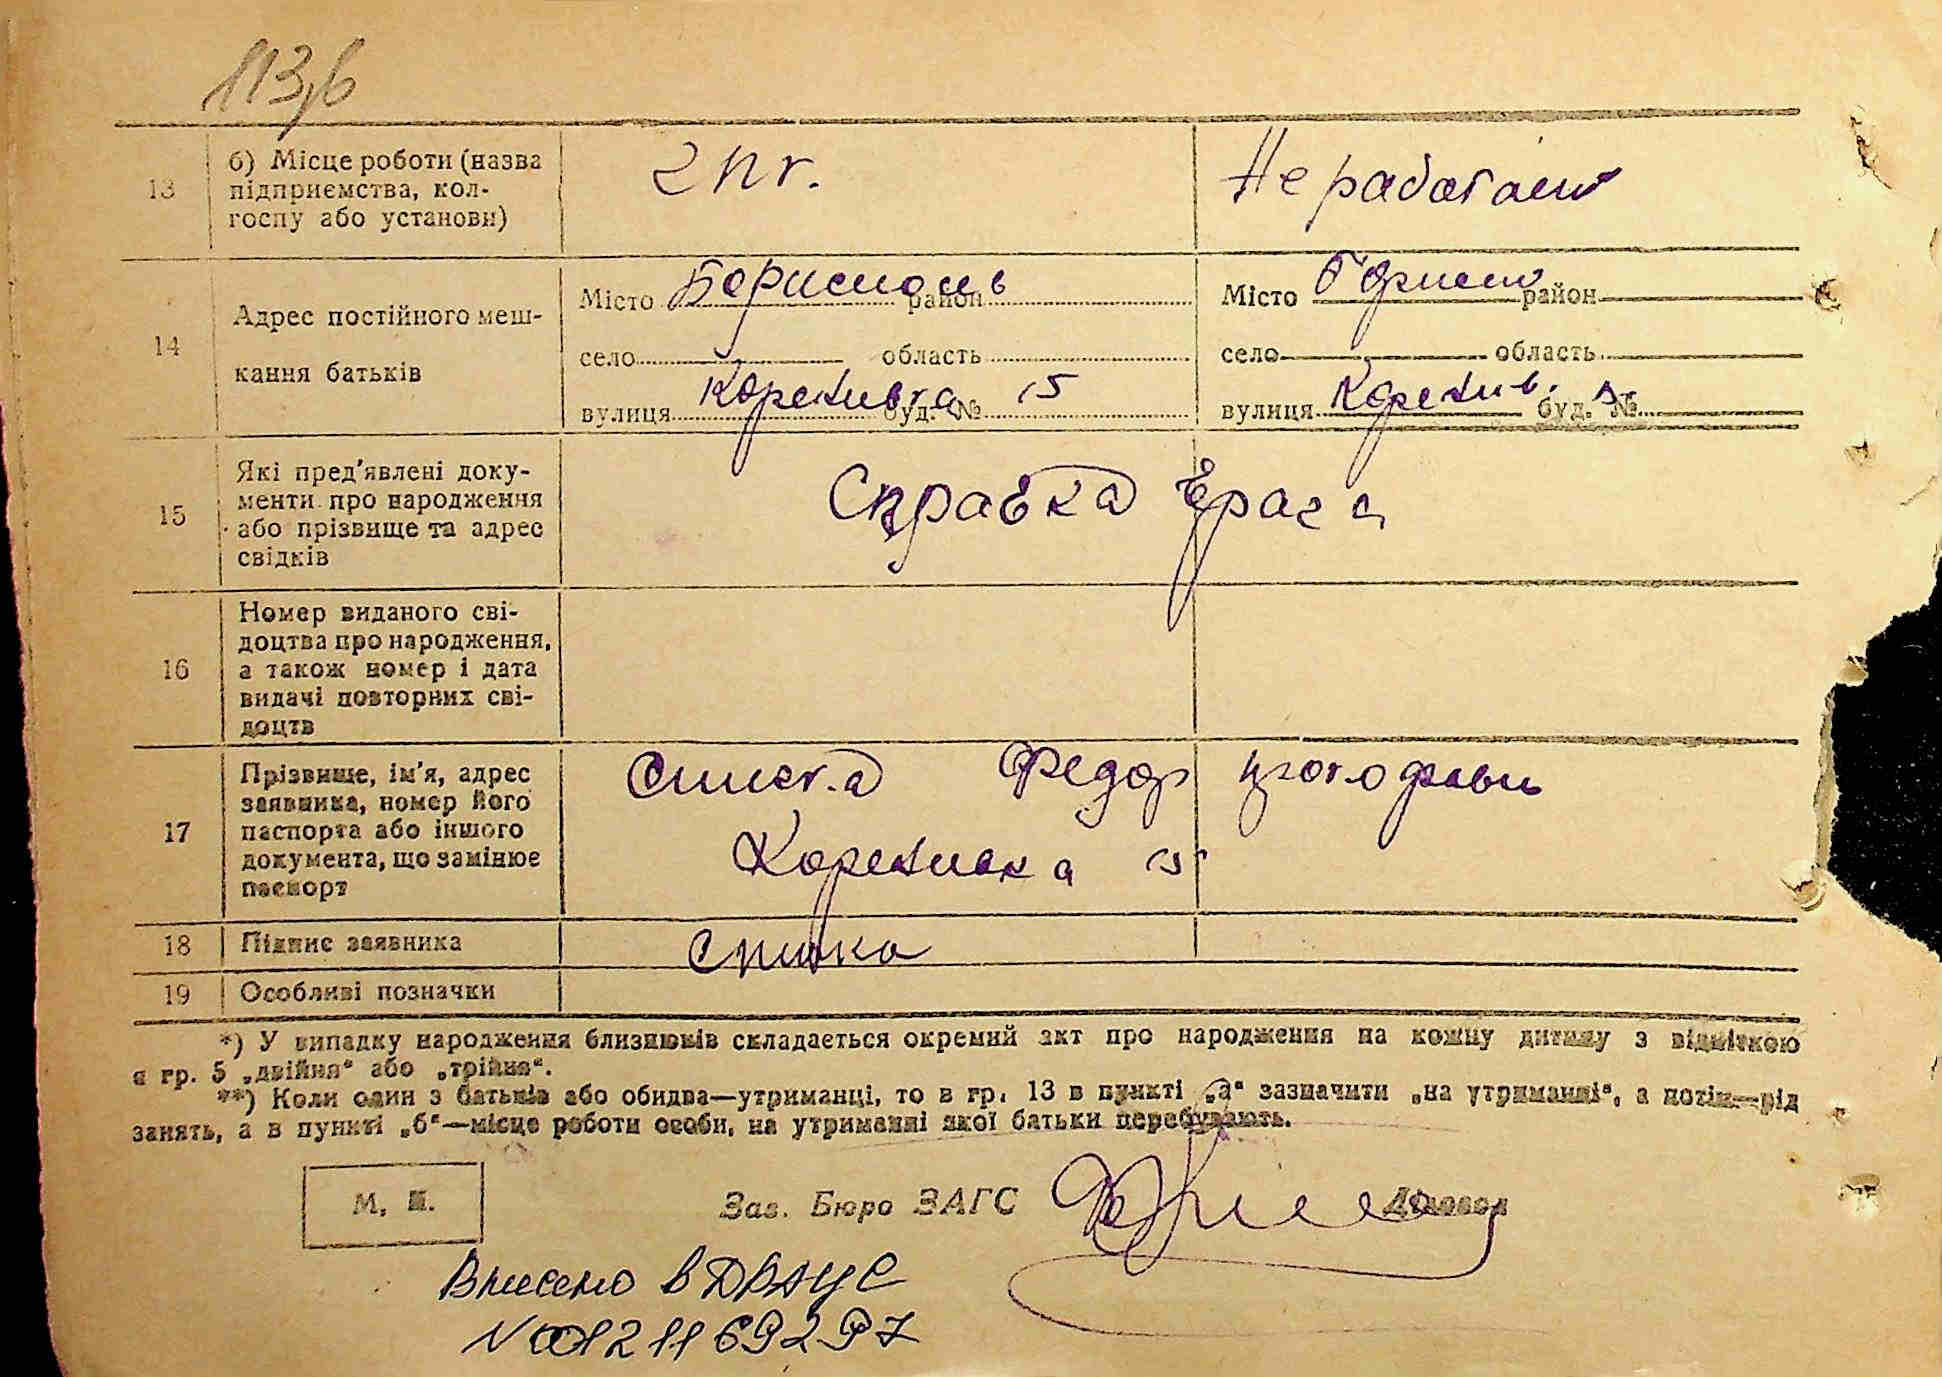 113,б
13 б) Місце роботи (назва підприємства, кол-
госпу або установи)
2 пг.
Не работает
14 Адрес постійного меш-
кання батьків
Місто Борисполь район
село область
вулиця буд. № 15
Місто район
село область
вулиця буд. №
15 Які пред'явлені доку-
менти про народження
або прізвище та адрес
свідків
Справка врача
16 Номер виданого сві-
доцтва про народження,
а також номер і дата
видачі повторних сві-
доцтв
17 Прізвище, ім'я, адрес
заявника, номер його
паспорта або іншого
документа, що замінює
паспорт
Федор
15
18 Підпис заявника
19 Особливі позначки
*) У випадку народження близнюків складається окремий акт про народження на кожну дитину з відміткою
в гр. 5 „двійня“ або „трійня“.
**) Коли один з батьків або обидва—утриманці, то в гр. 13 в пункті „а“ зазначити „на утриманні“, а потім—рід
занять, а в пункті „б“—місце роботи особи, на утриманні якої батьки перебувають.
М. П.
Зав. Бюро ЗАГС
Діловод
Внесено в ДРАЦС
N 00121169297